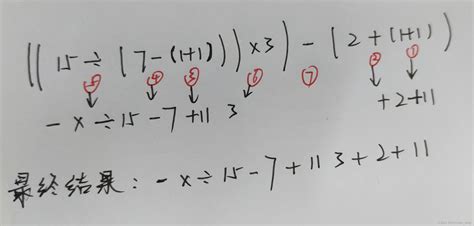 ((15÷(7-(1+1)))×3)-(2+(1+1))
⑤ ④ ③ ⑥ ⑦ ② ①
-×÷15-7+11 3 +2+11
最终结果：-×÷15-7+11 3+2+11